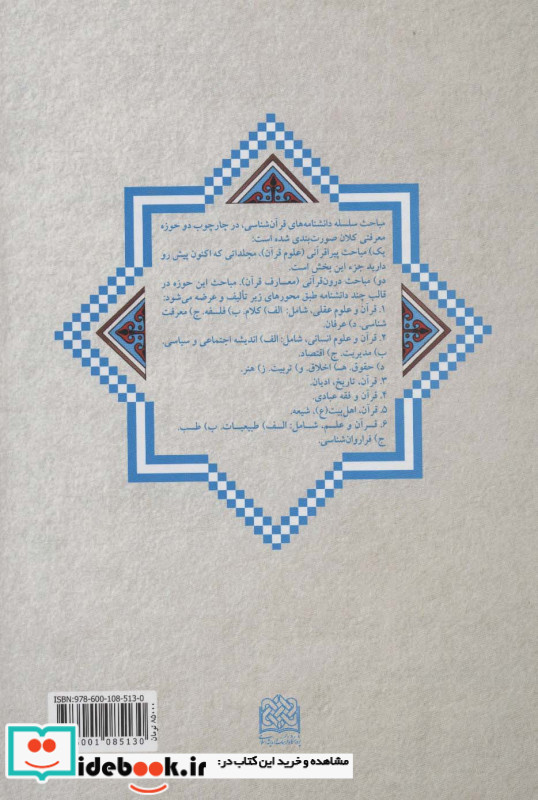 مباحث سلسله دانشنامه‌های قرآن‌شناسی، در چارچوب دو حوزه
معرفتی کلان صورت‌بندی شده است:
یک) مباحث پیراقرآنی (علوم قرآن). مجلداتی که اکنون پیش رو
دارید جزء این بخش است.
دو) مباحث درون‌قرآنی (معارف قرآن). مباحث این حوزه در
قالب چند دانشنامه طبق محورهای زیر تألیف و عرضه می‌شود:
۱. قرآن و علوم عقلی، شامل: الف) کلام. ب) فلسفه. ج) معرفت
شناسی. د) عرفان.
۲. قرآن و علوم انسانی، شامل: الف) اندیشه اجتماعی و سیاسی.
ب) مدیریت. ج) اقتصاد.
د) حقوق. هـ) اخلاق. و) تربیت. ز) هنر.
۳. قرآن، تاریخ، ادیان.
۴. قرآن و فقه عبادی.
۵. قرآن، اهل‌بیت(ع)، شیعه.
۶. قرآن و علم، شامل: الف) طبیعیات. ب) طب.
ج) فراروان‌شناسی.
ISBN:978-600-108-513-0
۸۵۰۰۰ تومان
001 085130
idebook.ir
مشاهده و خرید این کتاب در: